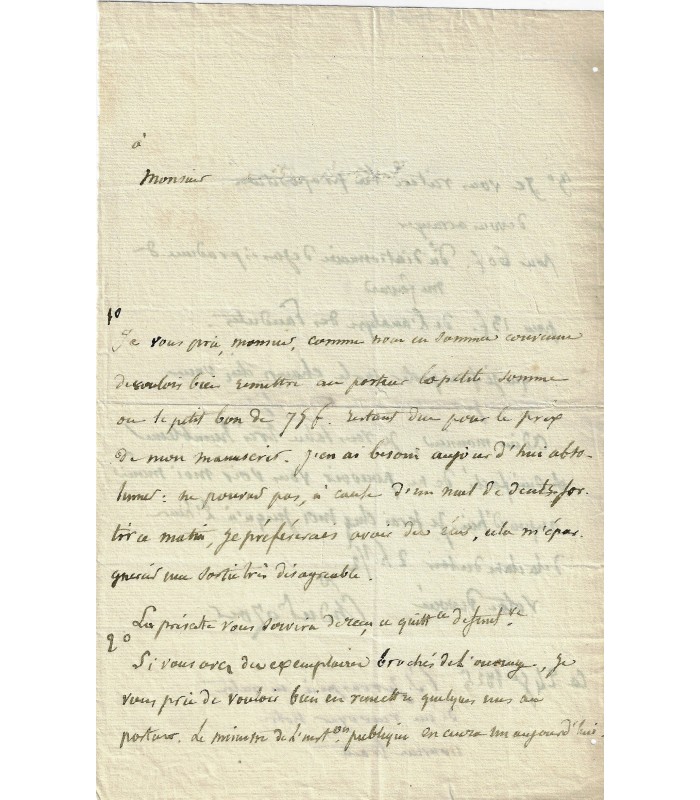 à
Monsieur
1º
Je vous prie, monsieur, comme nous en sommes convenus
de vouloir bien remettre au porteur la petite somme
ou le petit bon de 75 f. restant due pour le prix
de mon manuscrit. J'en ai besoin aujourd'hui abso-
lument : ne pouvant pas, à cause d'un mal de dents, sor-
tir ce matin, je préférerais avoir des écus, cela m'épar-
gnerait une sortie très désagréable.
La présente vous servira de reçu, ce quittce définitve
2º
Si vous avez des exemplaires brochés de l'ouvrage, je
vous prie de vouloir bien en remettre quelques uns au
porteur. Le ministre de l'inston publique en aura un aujourd'hui.